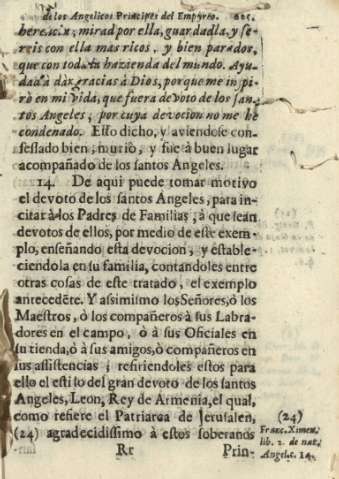 de los Angelicos Principes del Empyreo.
herencia; mirad por ella, guardadla, y se-
reis con ella mas ricos, y bien parados,
que con toda la hazienda del mundo. Ayu-
dad a dàr gracias à Dios, porque me inspi-
rò en mi vida, que fuera devoto de los san-
tos Angeles; por cuya devocion no me he
condenado. Esto dicho, y aviendose con-
fessado bien, murió, y fue à buen lugar
acompañado de los santos Angeles.
14. De aqui puede tomar motivo
el devoto de los santos Angeles, para in-
citar à los Padres de Familias, à que sean
devotos de ellos, por medio de este exem-
plo, enseñando esta devocion, y estable-
ciendola en su familia, contandoles entre
otras cosas de este tratado, el exemplo
antecedẽte. Y assimismo los Señores, ò los
Maestros, ò los compañeros à sus Labra-
dores en el campo, ò à sus Oficiales en
su tienda, ò à sus amigos, ò compañeros en
sus assistencias; refiriendoles estos para
ello el estilo del gran devoto de los santos
Angeles, Leon, Rey de Armenia, el qual,
como refiere el Patriarca de Jerusalen,
(24) agradecidissimo à estos soberanos
Rr Prin-
(24)
Franc. Ximen.
lib. 2. de nat.
Angel. c. 14.